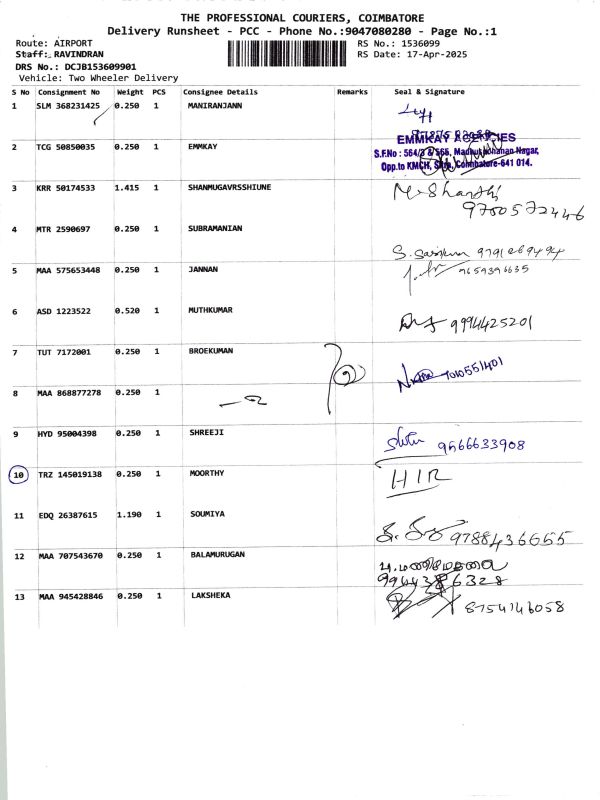 THE PROFESSIONAL COURIERS, COIMBATORE
Delivery Runsheet - PCC - Phone No.:9047080280 - Page No.:1
Route: AIRPORT RS No.: 1536099
Staff: RAVINDRAN RS Date: 17-Apr-2025
DRS No.: DCJB153609901
Vehicle: Two Wheeler Delivery
S No Consignment No Weight PCS Consignee Details Remarks Seal & Signature
1 SLM 368231425 0.250 1 MANIRANJANN
EMMKAY AGENCIES
2 TCG 50850035 0.250 1 EMMKAY
S.F.No : 564/3 & 565, Madhusohanan Nagar,
Opp.to KMCH, Coimbatore-641 014.
3 KRR 50174533 1.415 1 SHANMUGAVRSSHIUNE M. Shanthi
9700572446
4 MTR 2590697 0.250 1 SUBRAMANIAN
5 MAA 575653448 0.250 1 JANNAN 9659396635
6 ASD 1223522 0.520 1 MUTHKUMAR 9994425201
7 TUT 7172001 0.250 1 BROEKUMAN 7010551401
8 MAA 868877278 0.250 1
9 HYD 95004398 0.250 1 SHREEJI 9566633908
10 TRZ 145019138 0.250 1 MOORTHY HIR
11 EDQ 26387615 1.190 1 SOUMIYA 9788436655
12 MAA 707543670 0.250 1 BALAMURUGAN
9964386328
13 MAA 945428846 0.250 1 LAKSHEKA 8754146058